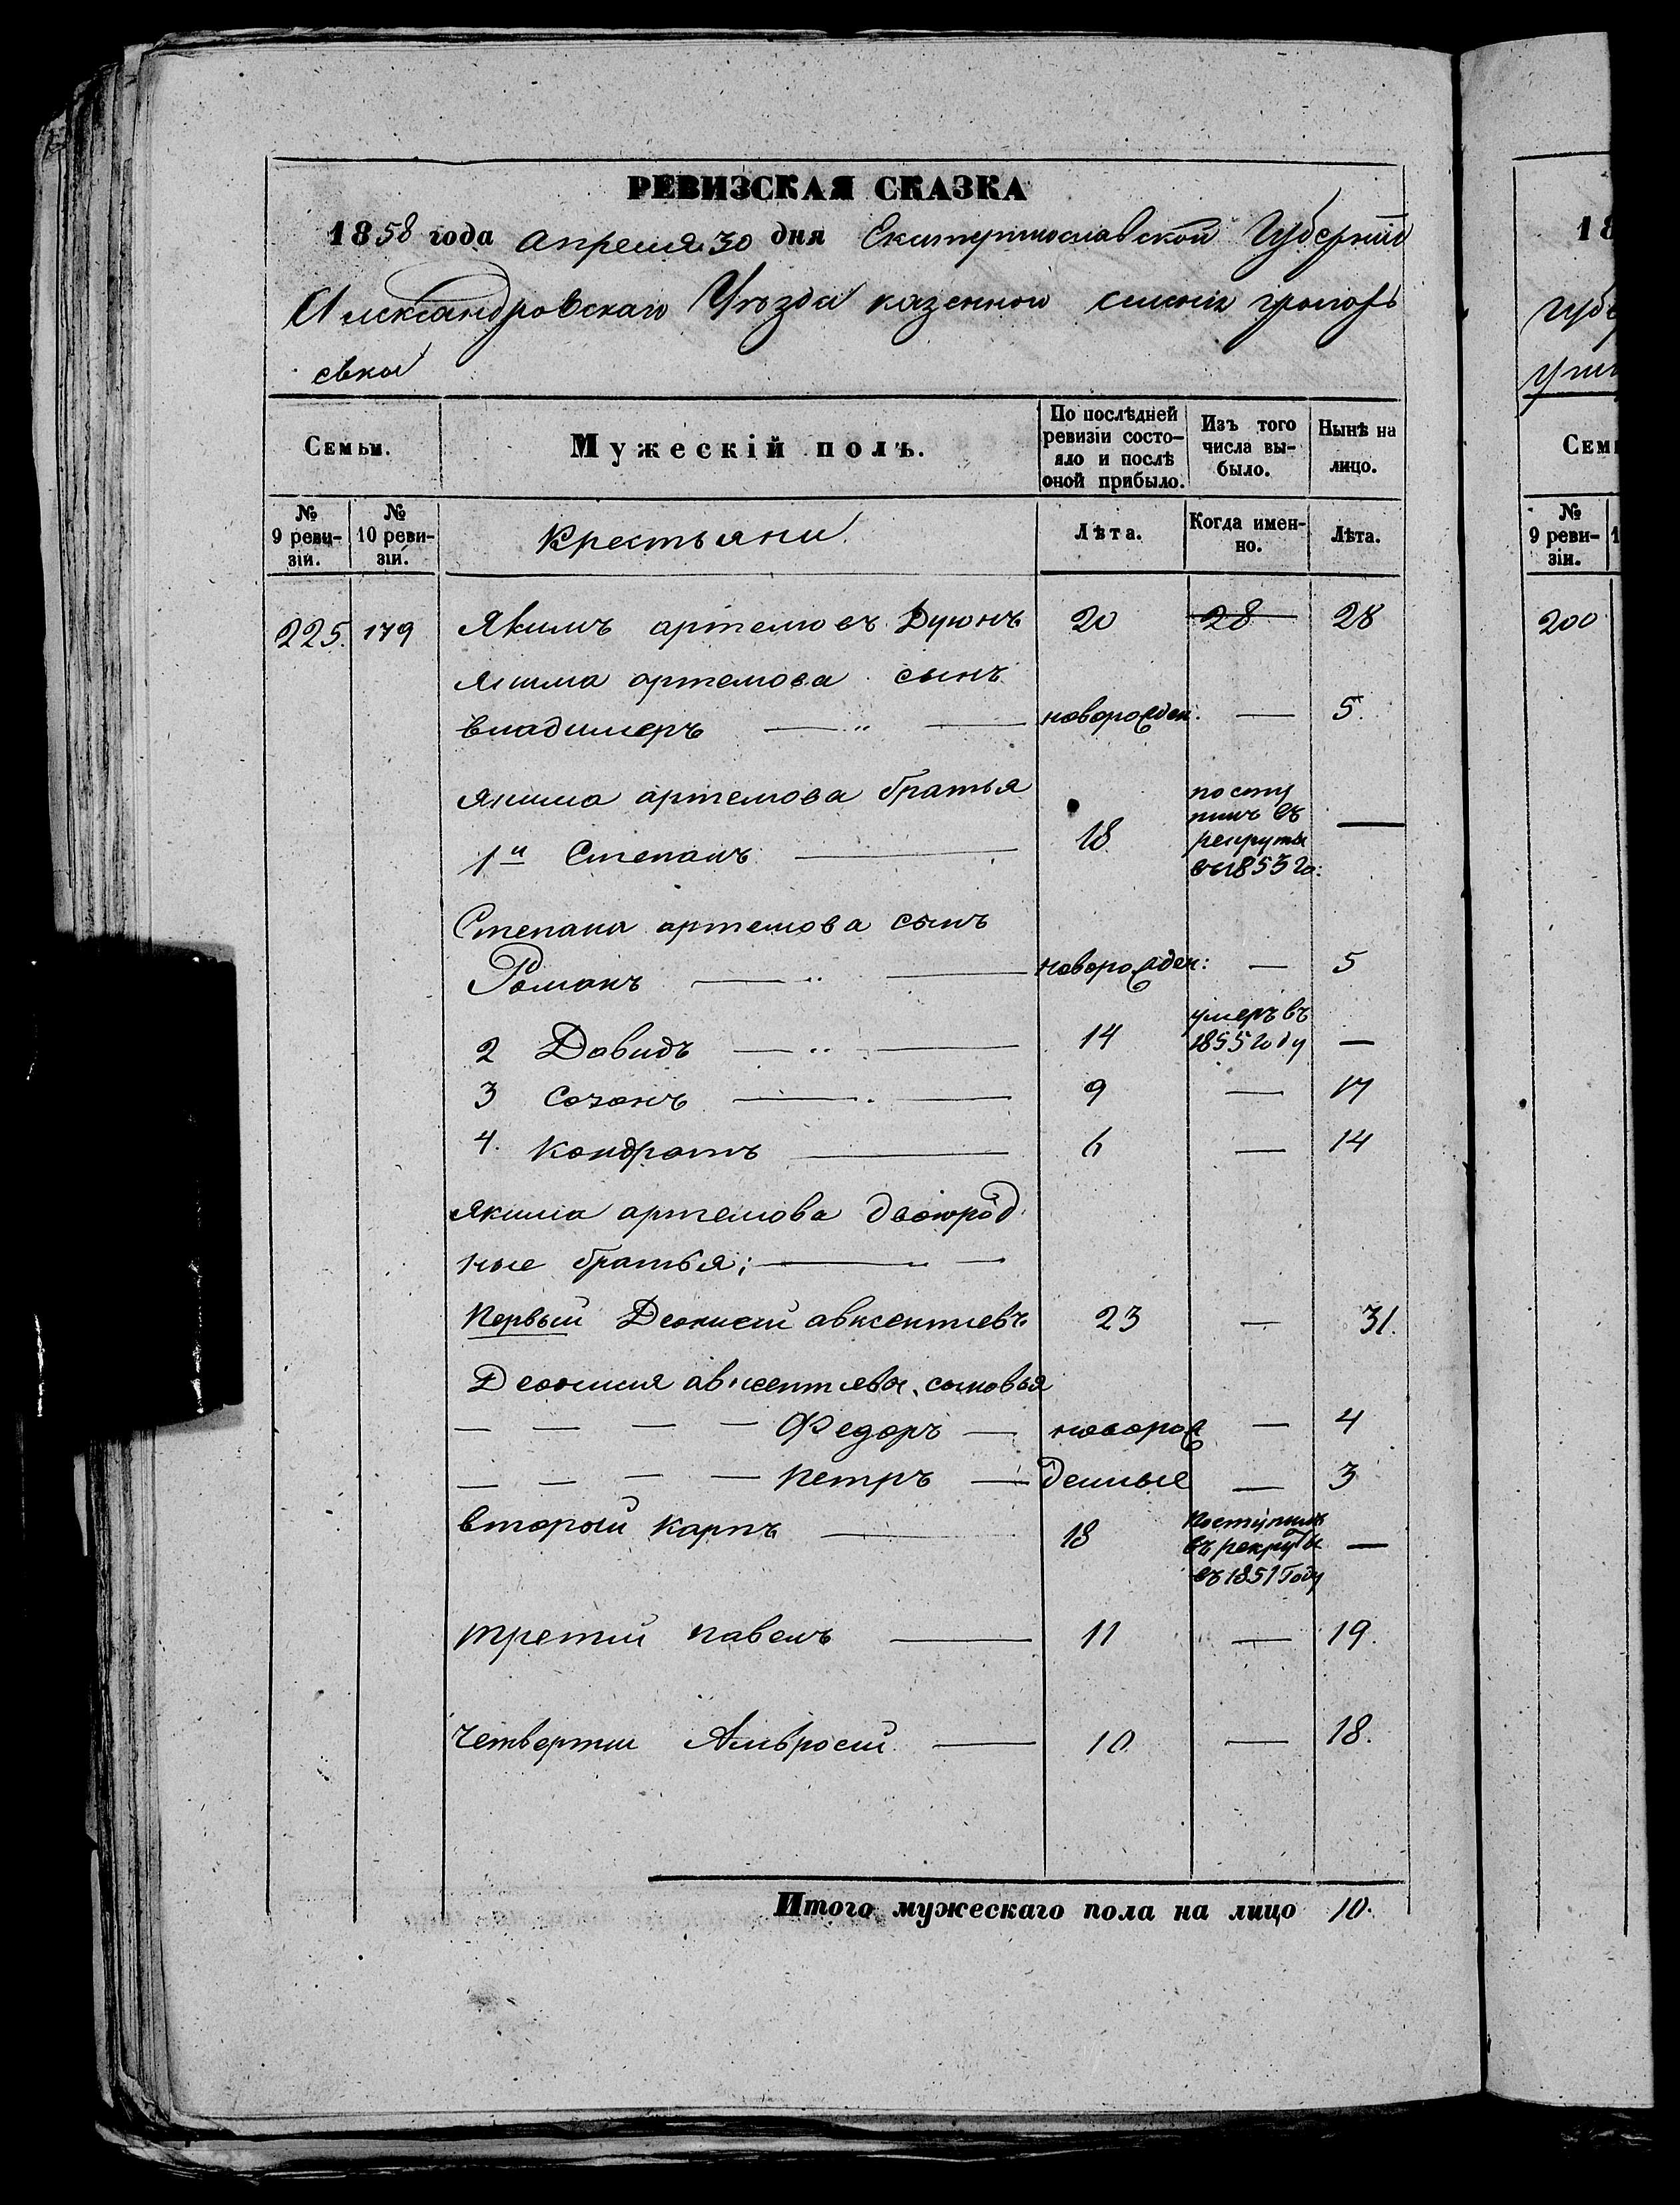 РЕВИЗСКАЯ СКАЗКА
1858 года апреля 30 дня Екатеринославской Губернии
Александровскаго Уѣзда казенной
евки
Семьи. Мужескій полъ. По послѣдней ревизіи состо- яло и послѣ оной прибыло. Изъ того числа вы- было. Нынѣ на лицо.
№ 9 реви- зіи. № 10 реви- зіи. Крестьяни Лѣта. Когда имен- но. Лѣта.
225. 179 Якимъ артемовъ 20 28 28
Якима артемова сынъ
владимеръ — " — новорожден. — 5.
якима артемова братья
1й Степанъ — 18 посту пилъ въ рекруты въ 1853 го: —
Степана артемова сынъ
Романъ — " — новорожден: — 5
2 Давидъ — " — 14 умеръ въ 1855 году —
3 Созонъ — 9 — 17
4. Кондратъ — 6 — 14
якима артемова двоюрод
ные братья; — " —
Первый Деонисий авксентиевъ 23 — 31.
Деонисия авксентиева сыновья
— — — — Федоръ — новорож — 4
— — — — Петръ — денные — 3
второй Карпъ — 18 поступилъ въ рекруты въ 1851 году —
третий павелъ — 11 — 19.
четвертий Амвросий — 10 — 18.
Итого мужескаго пола на лицо 10.
18
Губе
Семь
№ 9 реви- зіи. 1
200